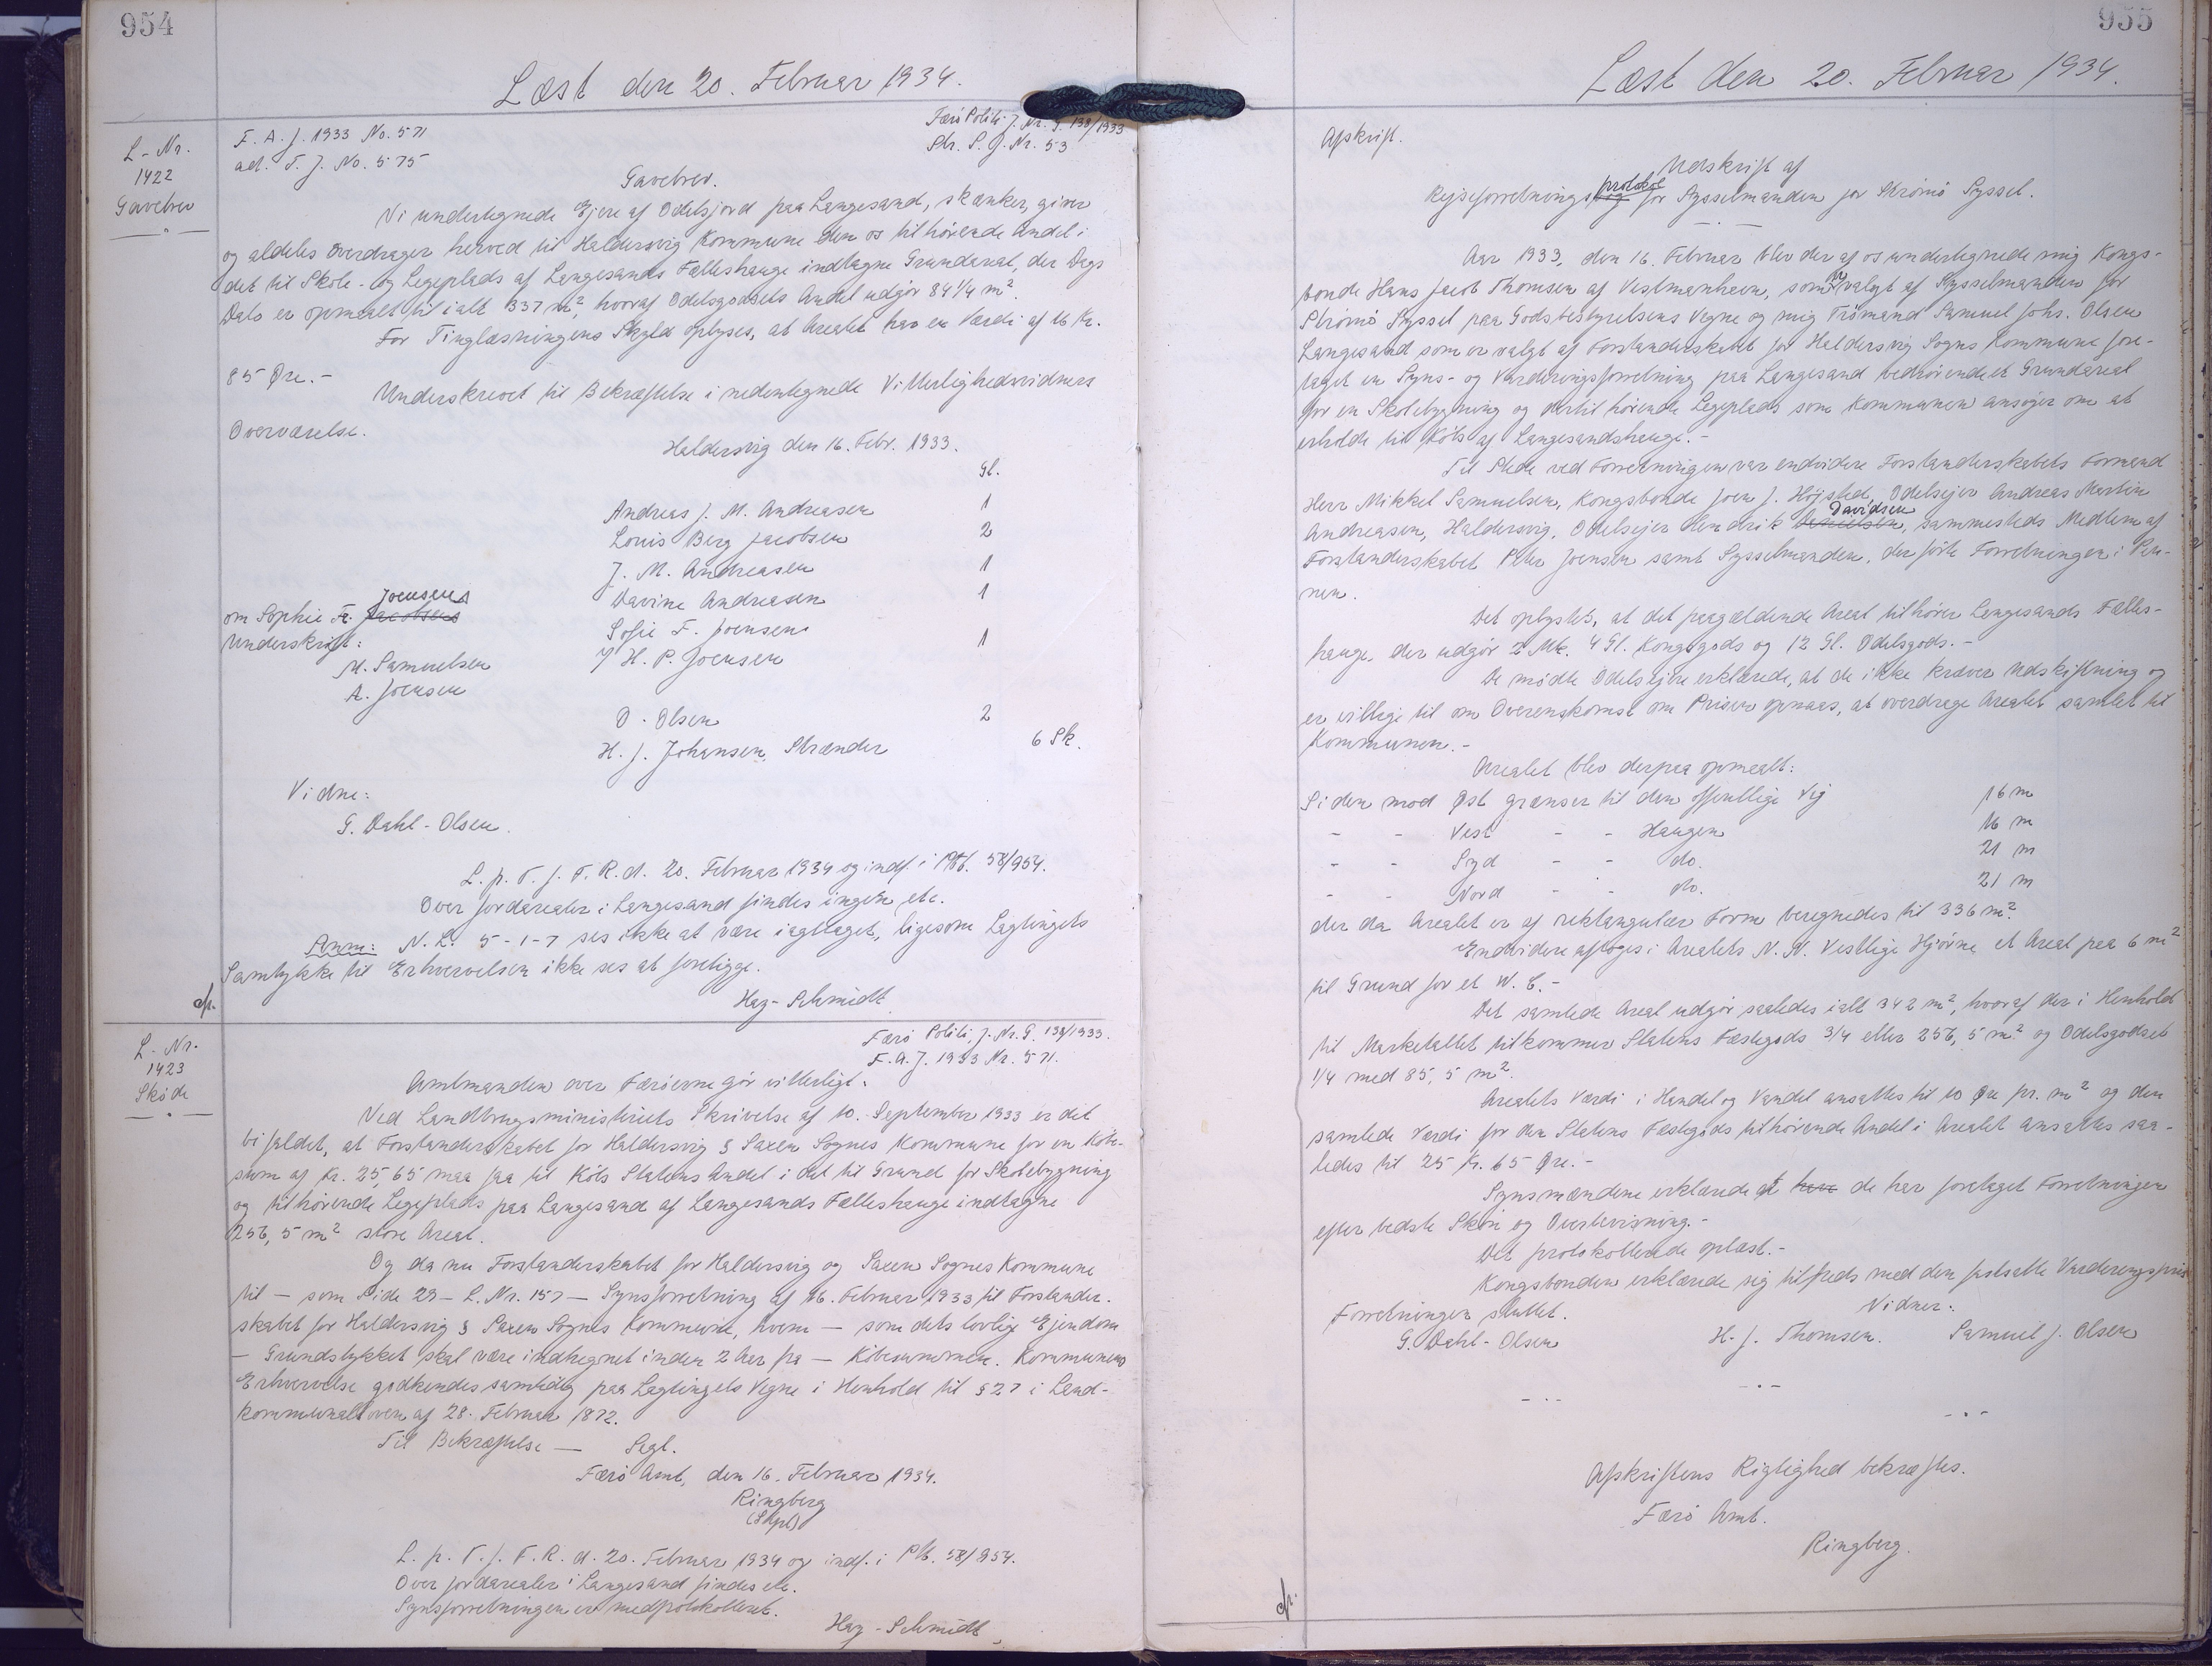 954
Læst den 20. Februar 1934.
L-Nr.
1422
Gavebrev
F. A. J. 1933 No. 571
ad. T. J. No. 575
Færö Politi J. Nr. G. 138/1933
Str. S. J. Nr. 53
Gavebrev.
Vi undertegnede Ejere af Odelsjord paa Langesand, skænker, giver
og aldeles overdrager herved til Haldersvig Kommune den os tilhörende Andel i
det til Skole- og Legeplads af Langesands Fælleshauge indtagne Grundareal, der Dags
Dato er opmaalt til ialt 337 m², hvoraf Odelsgodsets Andel udgör 84 1/4 m².
For Tinglæsningens Skyld oplyses, at Arealet har en Værdi af 16 Kr.
85 Øre.-
Underskrevet til Bekræftelse i nedentegnede Vitterlighedsvidners
Overværelse.
Haldersvig den 16. Febr. 1933.
Gl.
Andreas J. M. Andreasen 1
Louis Berg Jacobsen 2
J. M. Andreasen 1
Davine Andreasen 1
om Sophie Fr. Jacobsens Joensens
Underskrift:
M. Samuelsen
A. Joensen
Sofie F. Joensen
J H. P. Joensen 1
O. Olsen 2
H. J. Johansen, Strænder 6 Sk.
Vidne:
G. Dahl-Olsen.
L. p. T. f. F. R. d. 20. Februar 1934 og indf. i Ptk. 58/954.
Over Jordarealer i Langesand findes ingen etc.
Anm: N. L. 5-1-7 ses ikke at være iagttaget, ligesom Lagtingets
Samtykke til Erhvervelsen ikke ses at foreligge.
Hag-Schmidt
cfr.
L-Nr.
1423
Sköde
Færö Politi, J. Nr. G. 138/1933.
F. A. J. 1933 Nr. 571.
Amtmanden over Færöerne gör vitterligt:
Ved Landbrugsministeriets Skrivelse af 10. September 1933 er det
bifaldet, at Forstanderskabet for Haldersvig & Saxen Sognes Kommune for en Köbe-
sum af Kr. 25,65 maa faa til Köbs Statens Andel i det til Grund for Skolebygning
og tilhörende Legeplads paa Langesand af Langesands Fælleshauge indtagne
256,5 m² store Areal.
Og da nu Forstanderskabet for Haldersvig og Saxen Sognes Kommune
til — som Side 29 — L. Nr. 157 — Synsforretning af 16. Februar 1933 til Forstander-
skabet for Haldersvig & Saxen Sognes Kommune, hvem — som dets lovlige Ejendom
— Grundstykket skal være indhegnet inden 2 Aar fra — Köbesummen. Kommunens
Erhvervelse godkendes samtidig paa Lagtingets Vegne i Henhold til § 27 i Land-
kommunalloven af 28. Februar 1872.
Til Bekræftelse — Segl.
Færö Amt, den 16. Februar 1934.
Ringberg
L. p. T. f. F. R. d. 20. Februar 1934 og indf. i Ptk. 58/954.
Over Jordarealer i Langesand findes etc.
Synsforretningen er medprotokolleret.
Hag-Schmidt
955
Læst den 20. Februar 1934.
Afskrift.
Udskrift af
Rejseforretningsbog protokol for Sysselmanden for Strömö Syssel.
Aar 1933, den 16. Februar blev der af os undertegnede mig Kongs-
bonde Hans Jacob Thomsen af Vestmanhavn, som er valgt af Sysselmanden for
Strömö Syssel paa Godsbestyrelsens Vegne og mig Trömand Samuel Johs. Olsen
Langesand som er valgt af Forstanderskabet for Haldersvig Sogns Kommune fore-
taget en Syns- og Vurderingsforretning paa Langesand vedrörende et Grundareal
for en Skolebygning og dertil hörende Legeplads som Kommunen ansøger om at
erholde til Köbs af Langesandshauge.-
Til Stede ved Forretningen var endvidere Forstanderskabets Formand
Herr Mikkel Samuelsen, Kongsbonde Joen J. Höjsted, Odelsejer Andreas Martin
Andreasen, Haldersvig, Odelsejer Hendrik Danielsen Davidsen, sammesteds Medlem af
Forstanderskabet Peter Joensen samt Sysselmanden, der förte Forretningen i Pen-
nen.
Det oplystes, at det paagældende Areal tilhörer Langesands Fælles-
hauge, der udgör 2 Mk. 4 Gl. Kongsgods og 12 Gl. Odelsgods.-
De mödte Odelsejere erklærede, at de ikke kræver Udskiftning og
er villige til om Overenskomst om Prisen opnaas, at overdrage Arealet samlet til
Kommunen.-
Arealet blev derpaa opmaalt:
Siden mod Øst grænser til den offentlige Vej 16 m
- - Vest - - Haugen 16 m
- - Syd - - do. 21 m
- - Nord - - do. 21 m
der da Arealet er af rektangulær Form beregnedes til 336 m².
Endvidere aftoges i Arealets N. N. Vestlige Hjörne et Areal paa 6 m²
til Grund for et W. C.-
Det samlede Areal udgör saaledes ialt 342 m², hvoraf der i Henhold
til Marketallet tilkommer Statens Fæstegods 3/4 eller 256,5 m² og Odelsgodset
1/4 med 85,5 m².
Arealets Værdi i Handel og Vandel ansattes til 10 Øre pr. m² og den
samlede Værdi for den Statens Fæstegods tilhörende Andel i Arealet ansattes saa-
ledes til 25 Kr. 65 Øre.-
Synsmændene erklærede at have de har foretaget Forretningen
efter bedste Skön og Overbevisning.-
Det protokollerede oplæst.-
Kongsbonden erklærede sig tilfreds med den fastsatte Vurderingspris
Forretningen sluttet.
Vidner:
G. Dahl-Olsen H. J. Thomsen. Samuel J. Olsen
Afskriftens Rigtighed bekræftes.
Færö Amt.
Ringberg.
cfr.